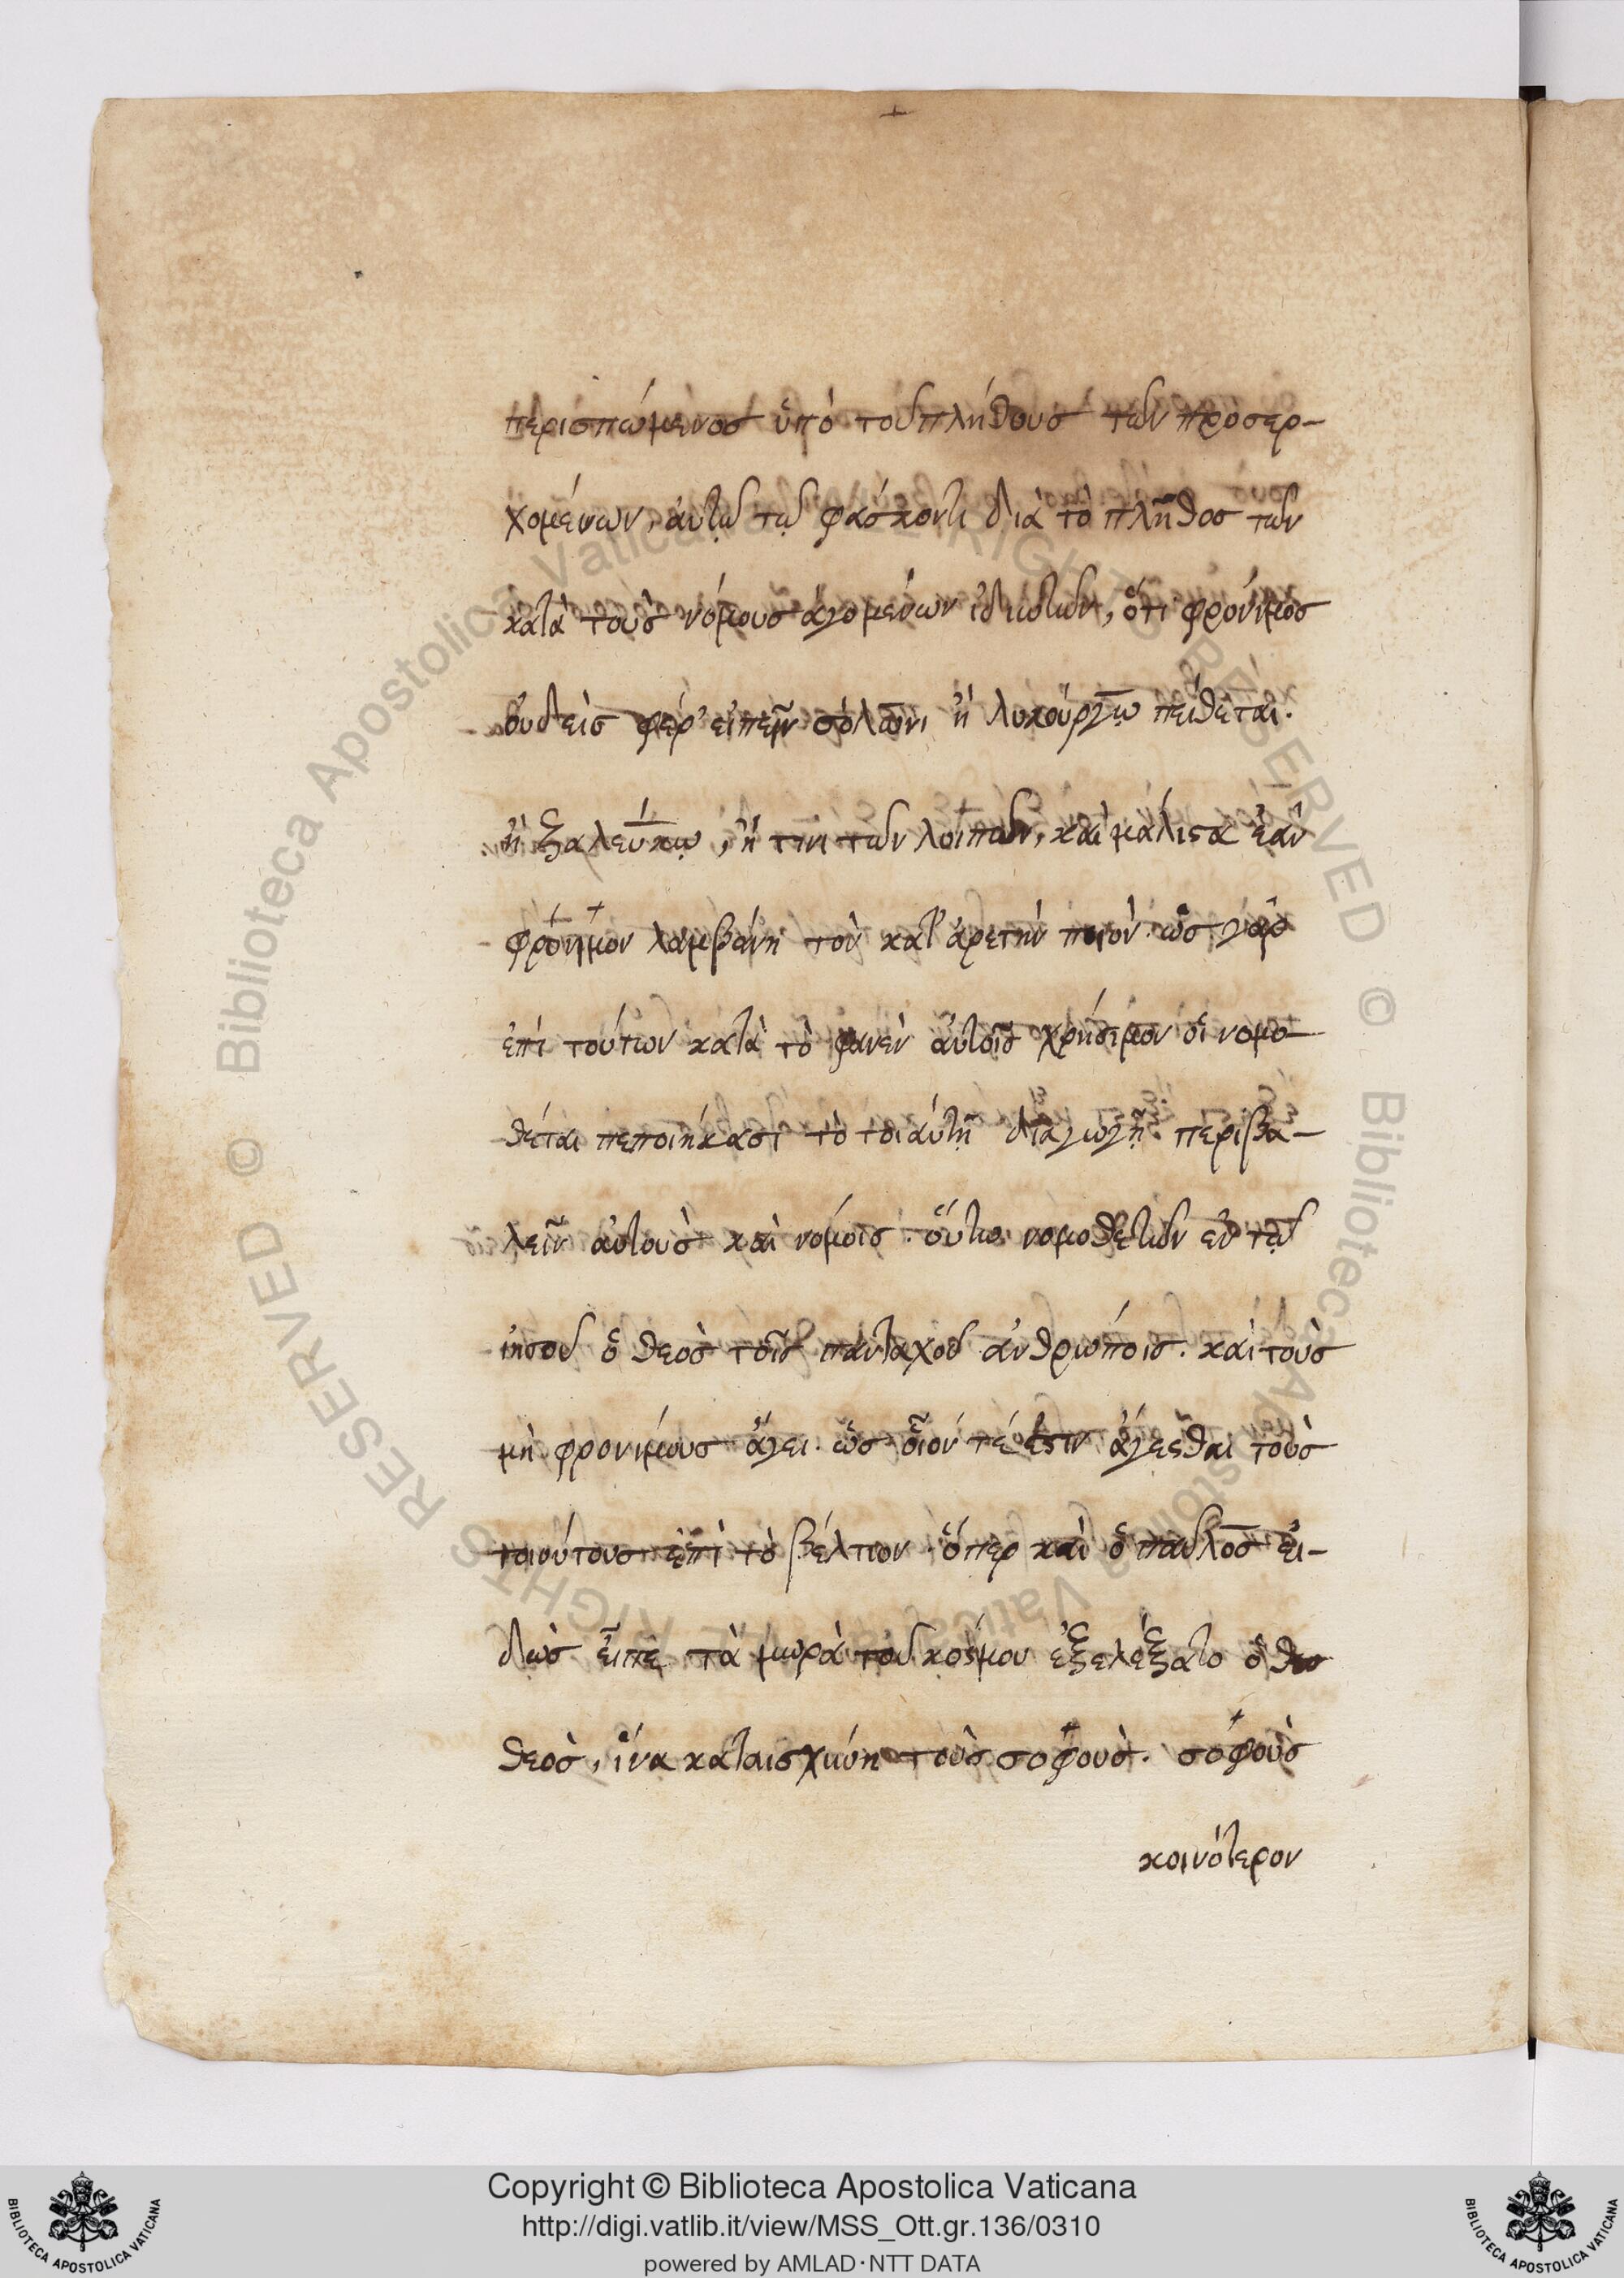 περισπώμενος ὑπὸ τοῦ πλήθους τῶν προσερ-
χομένων, ἀυτῷ τῷ φάσκοντι διὰ τὸ πλῆθος τῶν
κατὰ τοὺς νόμους ἀγομένων ἰδιωτῶν, ὅτι φρόνιμος
ὀυδεὶς φέρ' εἰπεῖν σόλωνι ἢ λυκούργῳ πείθεται.
ἢ ζαλεύκῳ, ἤ τινι τῶν λοιπῶν, καὶ μάλιστα ἐὰν
φρόνιμον λαμβάνῃ τὸν κατ' ἀρετὴν ποιόν. ὡς γὰρ
ἐπὶ τούτων κατὰ τὸ φανὲν ἀυτοῖς χρήσιμον οἱ νομο-
θέται πεποιήκασι τὸ τοιαύτῃ διαγωγῇ περιβα-
λεῖν ἀυτοὺς καὶ νόμοις. οὕτω νομοθετῶν ἐν τῷ
ἰησοῦ ὁ θεὸς τοῖς πανταχοῦ ἀνθρώποις. καὶ τοὺς
μὴ φρονίμους ἄγει. ὡς οἷόν τέ ἐστιν ἄγεσθαι τοὺς
τοιούτους ἐπὶ τὸ βέλτιον. ὅπερ καὶ ὁ παῦλος ἐι-
δὼς εἶπε τὰ μωρὰ τοῦ κόσμου ἐξελέξατο ὁ
θεὸς, ἵνα καταισχύνῃ τοὺς σοφούς. σοφοὺς
κοινότερον
Copyright © Biblioteca Apostolica Vaticana
http://digi.vatlib.it/view/MSS_Ott.gr.136/0310
powered by AMLAD·NTT DATA
BIBLIOTECA APOSTOLICA VATICANA
BIBLIOTECA APOSTOLICA VATICANA
© Biblioteca Apostolica Vaticana ALL RIGHTS RESERVED
© Biblioteca Apostolica Vaticana ALL RIGHTS RESERVED